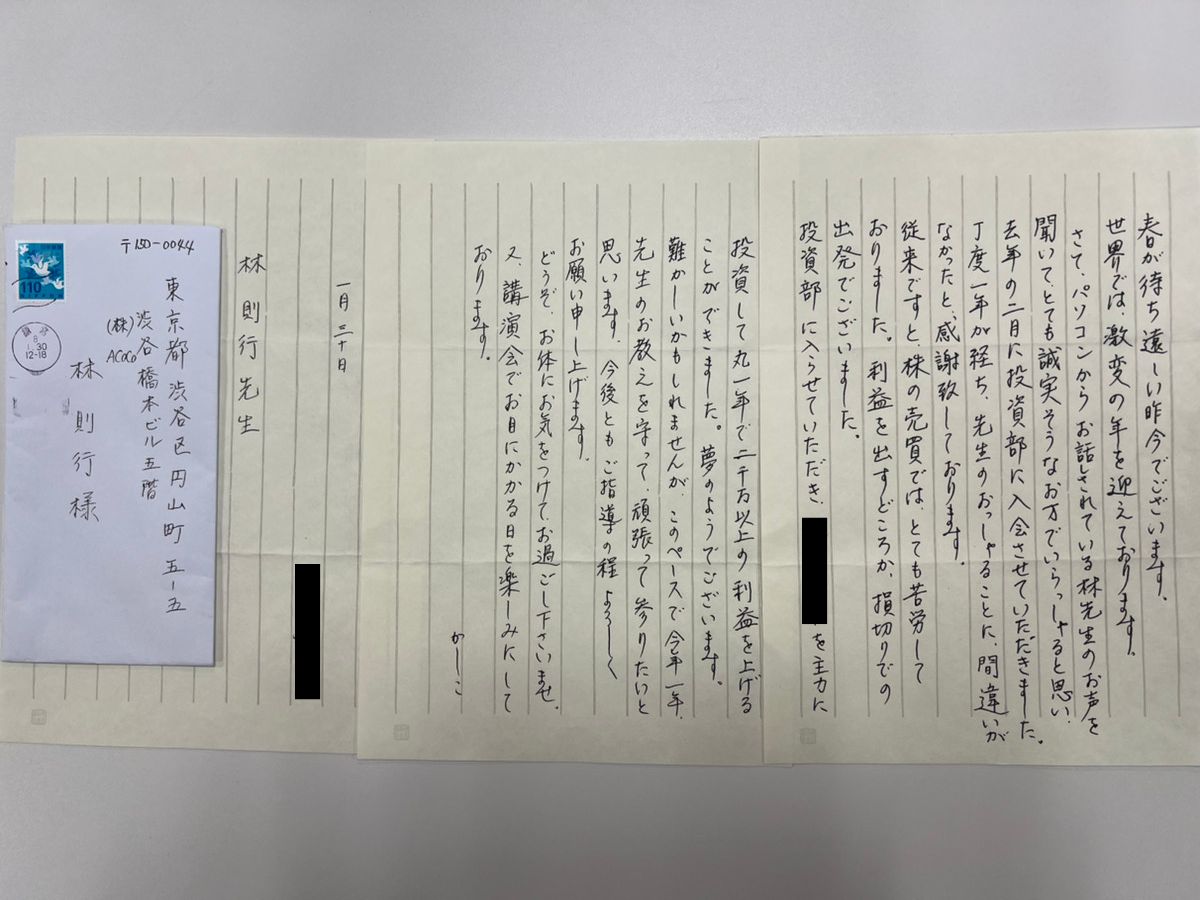 春が待ち遠しい昨今でございます。
世界では、激変の年を迎えております。
さて、パソコンからお話しされている林先生のお声を
聞いて、とても誠実そうなお方でいらっしゃると思い、
去年の二月に投資部に入会させていただきました。
丁度一年が経ち、先生のおっしゃることに、間違いが
なかったと、感謝致しております。
従来ですと、株の売買では、とても苦労して
おりました。利益を出すどころか、損切りでの
出発でございました。
投資部に入らせていただき、
を主力に
投資して丸一年で二千万以上の利益を上げる
ことができました。夢のようでございます。
難かしいかもしれませんが、このペースで今年一年、
先生のお教えを守って、頑張って参りたいと
思います。今後ともご指導の程よろしく
お願い申し上げます。
どうぞ、お体にお気をつけて、お過ごし下さいませ。
又、講演会でお目にかかる日を楽しみにして
おります。
かしこ
一月三十日
林則行先生
〒150-0044
東京都渋谷区円山町五-五
渋谷橋本ビル五階
(株)ACoCo
林則行様
110
8
1.30
12-18